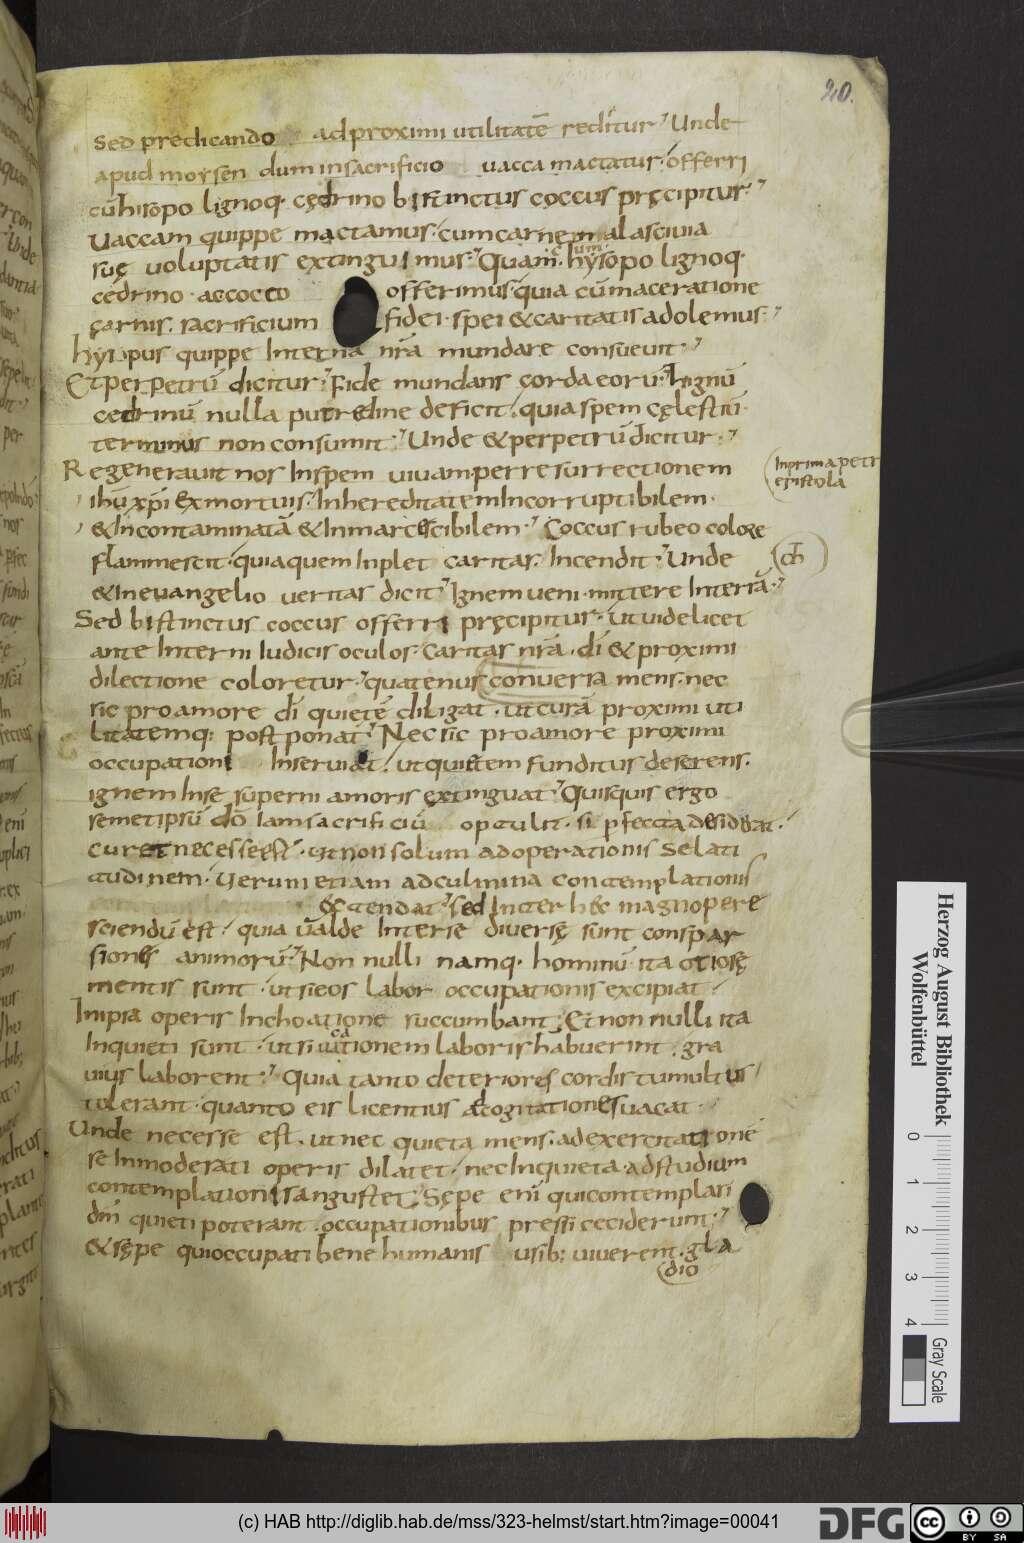 20.
sed prędicando ad proximi utilitatē reditur Unde
apud moysen dum in sacrificio uacca mactatur offerri
cū hisopo lignoq· cędrino bistinctus coccus pręcipitur·
Uaccam quippe mactamus· cum carnem a lasciuia
suę uoluptatis extinguimus· Quam cum hysopo lignoq·
cedrino ac cocco offerimus· quia cū maceratione
carnis· sacrificium fidei· spei & caritatis adolemus·
hysopus quippe Interna nr̄a mundare consueuit·
Et per petrū dicitur· Fide mundans corda eorū· Lignū
cedrinū nulla putredine deficit· quia spem cęlestiū·
terminus non consumit· Unde & per petrū dicitur·
Regenerauit nos In spem uiuam per resurrectionem
Inprima petr
epistola
ihū xp̄i Ex mortuis· In hereditatem Incorruptibilem·
& Incontaminatā & Inmarcescibilem· Coccus rubeo colore
flammescit· quia quem Inplet caritas· Incendit· Unde
& In euangelio ueritas dicit· Ignem ueni mittere In terrā·
Sed bistinctus coccus offerri pręcipitur· Ut uidelicet
ante Interni Iudicis oculos· caritas nr̄a· dī & proximi
dilectione coloretur· quatenus conuersa mens· nec
sic pro amore dī quietē diligat· ut curā proximi uti
litatemq; postponat· Nec sic pro amore proximi
occupationi Inseruiat· ut quietem funditus deserens·
ignem In se superni amoris extinguat· Quisquis ergo
semetipsū dō Iam sacrificiū optulit· si pfecta desiderat·
curet necesse est· ut non solum ad operationis se lati
tudinem· Uerum etiam ad culmina contemplationis
extendat· Sed Inter hęc magnopere
sciendū est· quia ualde Inter se diuersę sunt conspar
siones animorū· Non nulli namq· hominū ita otiosę
mentis sunt· ut si eos labor occupationis excipiat·
In ipsa operis Inchoatione succumbant· Et non nulli ita
Inquieti sunt· ut si uacationem laboris habuerint· gra
uius laborent· Quia tanto deteriores cordis tumultus
tolerant· quanto eis licentius ad cogitationes uacat·
Unde necesse est· ut nec quieta mens· ad exercitationē
se Inmoderati operis dilatet· nec Inquieta· ad studium
contemplationis angustet· Sępe enī qui contemplari
dm̄ quieti poterant· occupationibus pressi ceciderunt·
& sępe qui occupati bene humanis usib; uiuerent· gla
dio
Herzog August Bibliothek
Wolfenbüttel
0 1 2 3 4
Gray Scale
(c) HAB http://diglib.hab.de/mss/323-helmst/start.htm?image=00041
DFG
cc BY SA